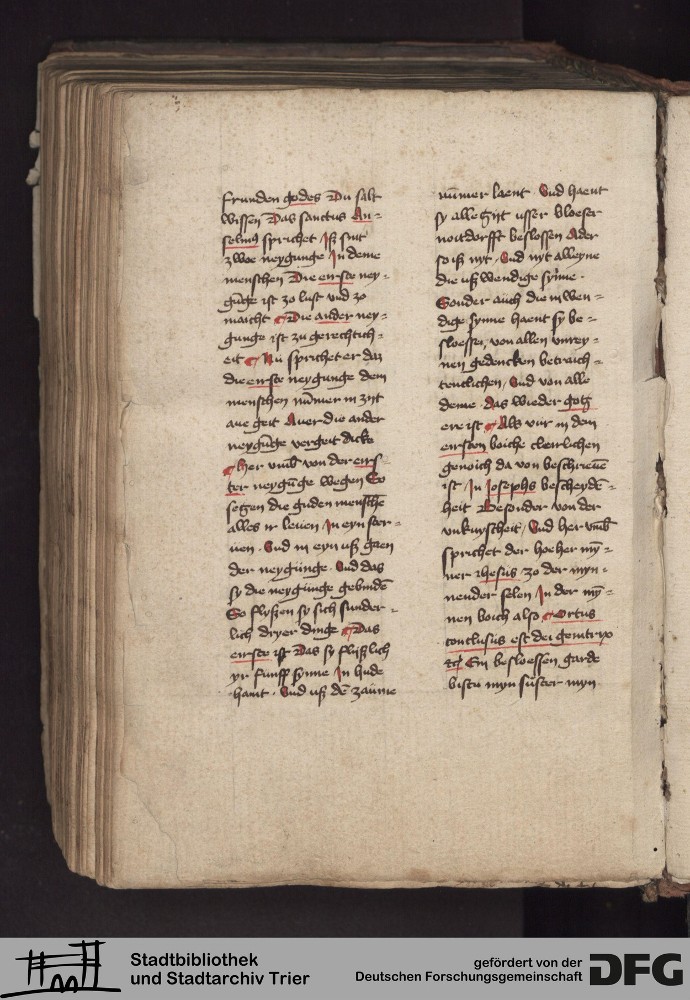 frunden godes Du salt
wissen Das sanctus An-
selmꝰ sprichet Jß sint
zwoe neygunge Jn deme
menschen Die eirste ney-
gūge ist zo lust vnd zo
maicht Die ander ney-
gunge ist zu gerechtich-
eit Nu sprichet er daz
die eirste neygunge dem
menschen nūmer in zijt
aue geit Auer die ander
neygūge vergeit dicke
Her vmb von der eirs-
ter neygūge wegen So
setzen die guden mensche
alles ir leuen Jn eyn ster-
uen Vnd in eyn uß gaen
der neygunge Vnd das
sy die neygunge gebindē
So flyßen sy sich sunder-
lich dryer dinge Das
eirste ist Das sy flyßlich
yr funff synne Jn hude
haint Vnd uß dē zaūme
nūmer laent Vnd haent
sy alle zijt usser bloeser
noitdorfft beslossen Ader
so iß nyt Vnd nyt alleyne
die uß wendige syñe
Sonder auch die in wen-
dige synne haent sy be-
sloessen, von allen vnrey-
nen gedencken betraich-
tenclichen Vnd von alle
deme das wieder gotz
ere ist Als vur in dem
eirsten boiche clerlichen
genoich da von beschreuē
ist Jn Josephs bescheydē-
heit Besonder von der
vnkuyscheit Vnd her vmb
sprichet der hoeher my-
ner Jhesus zo der myn-
nender selen Jn der my-
nen boich also Ortus
conclusus est dei genitrix
Ein besloessen garde
bistu myn suster myn
Stadtbibliothek
und Stadtarchiv Trier
gefördert von der
Deutschen Forschungsgemeinschaft
DFG